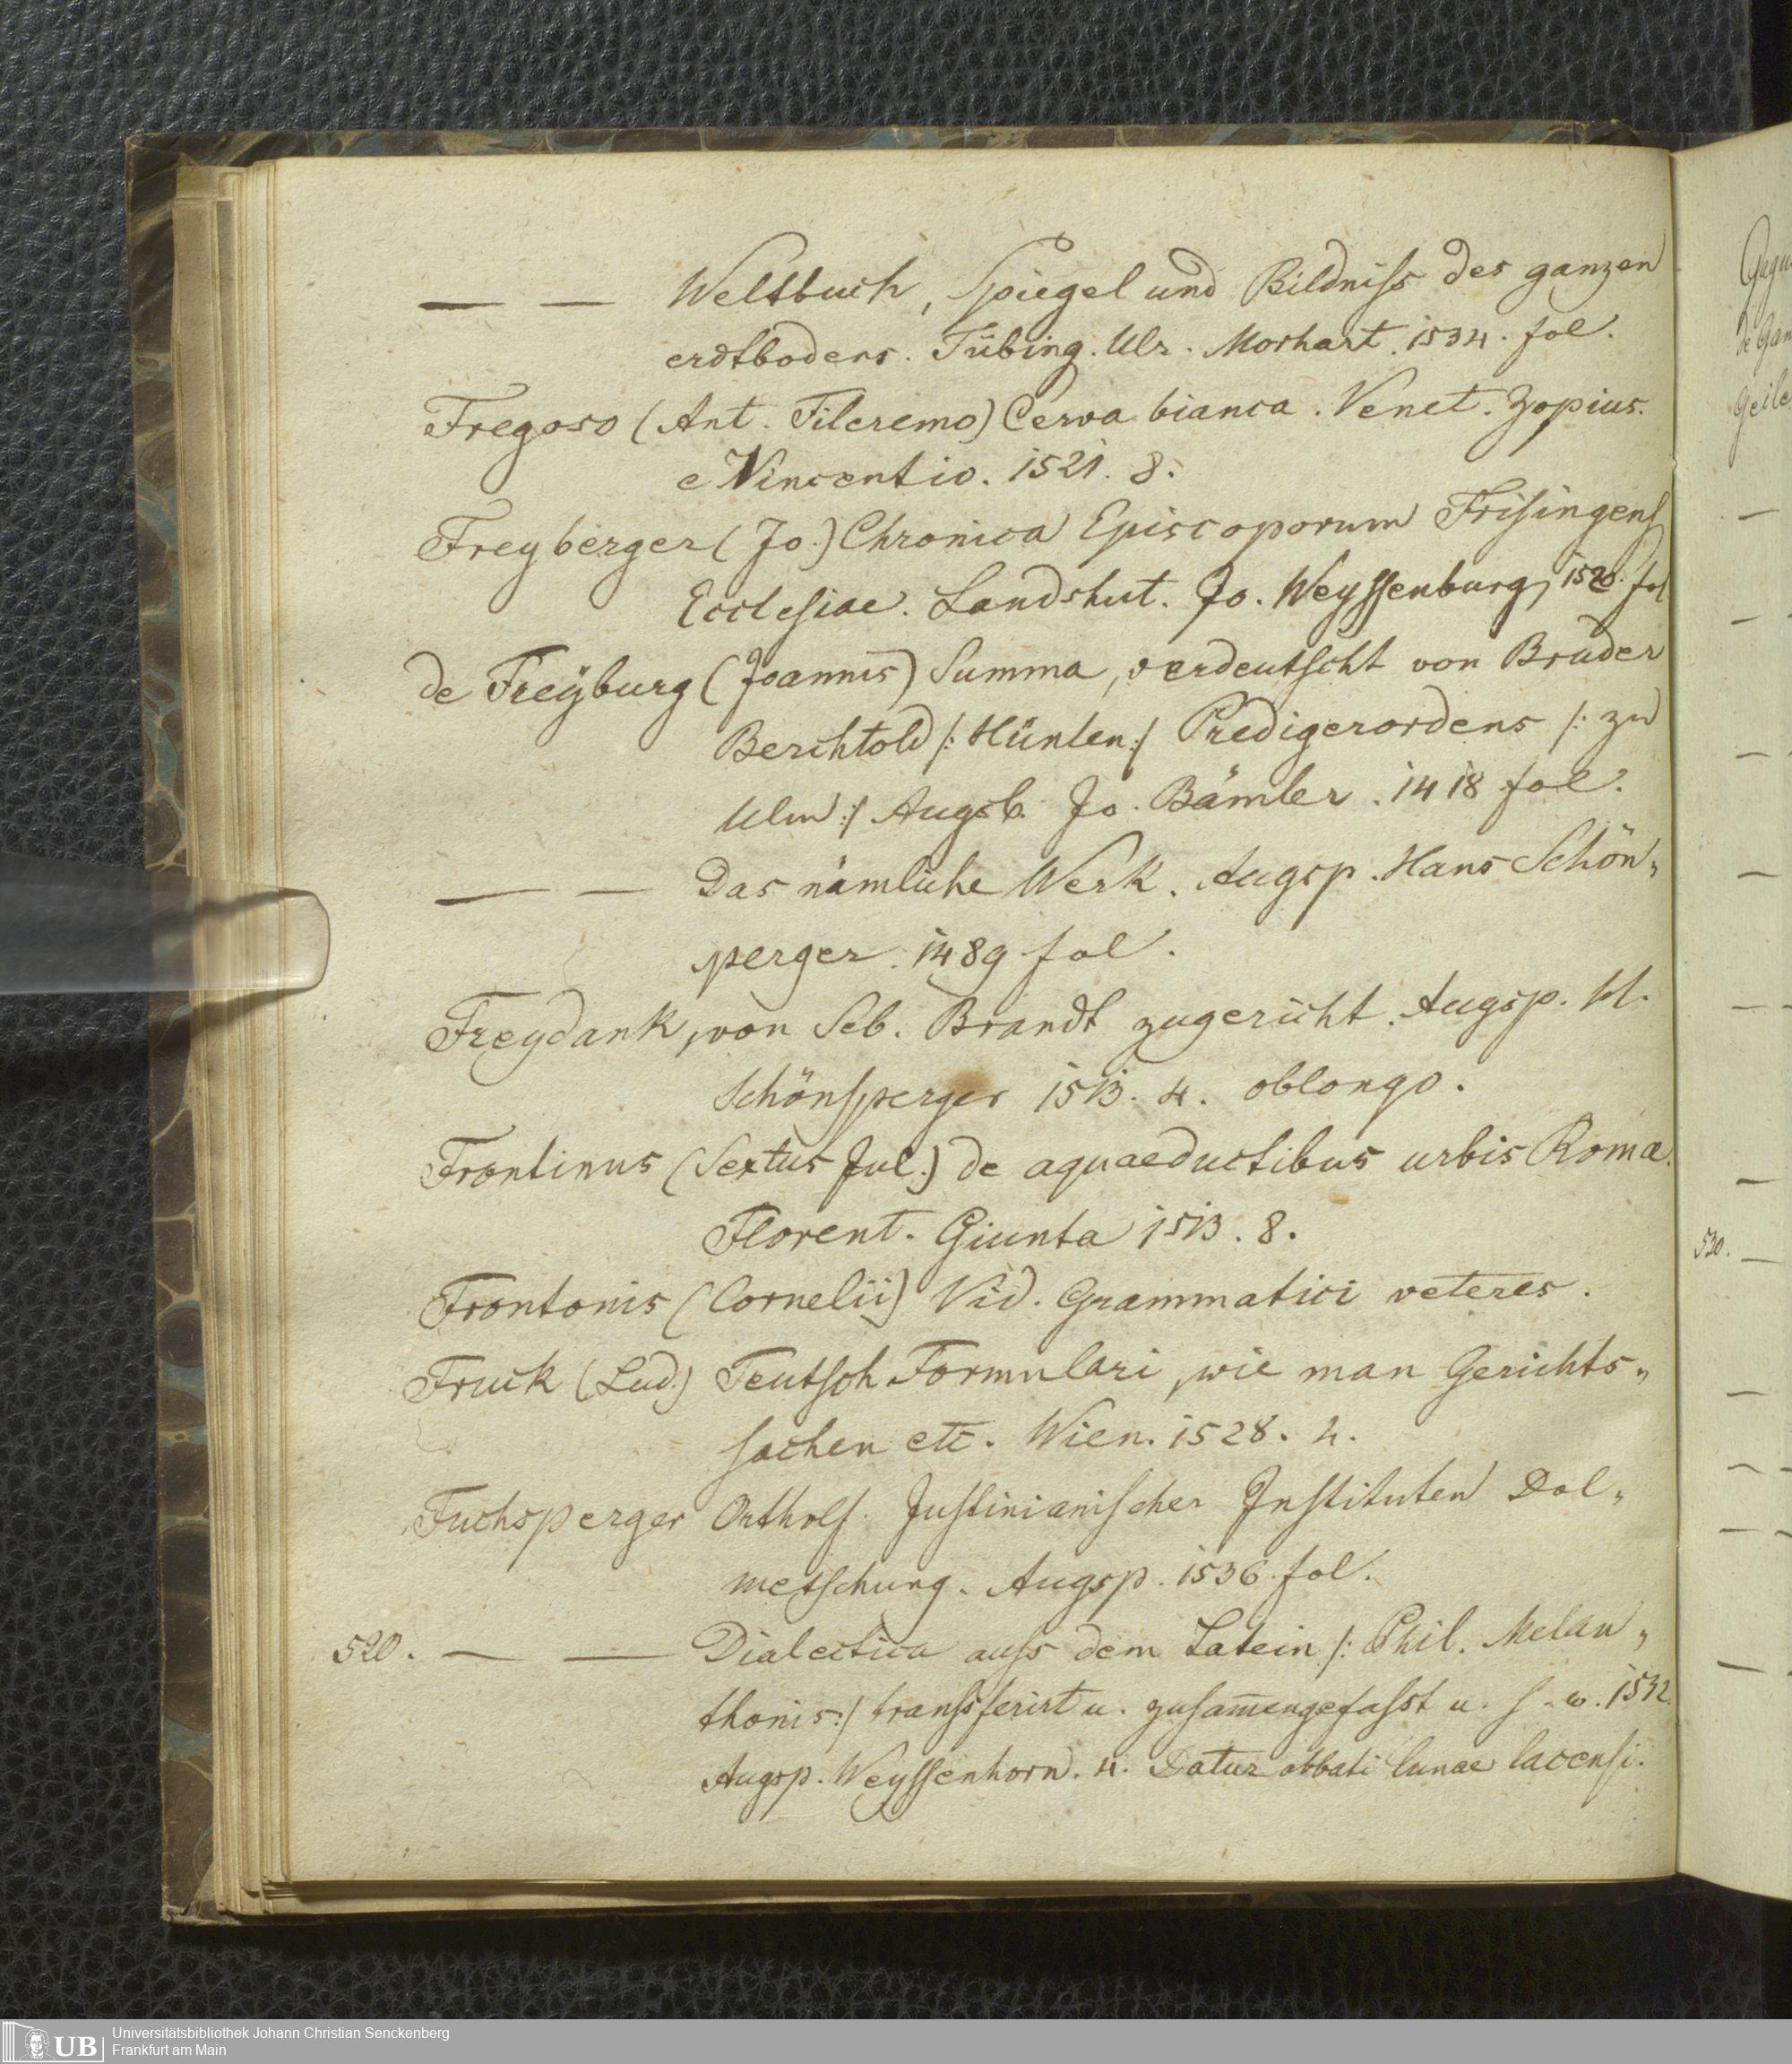 — — Weltbuch, Spiegel und Bildniſs des ganzen
erdtbodens. Tübing. Ulr. Morhart. 1534. fol.
Fregoso (Ant. Fileremo) Cerva bianca. Venet. Zopius.
e Vincentio. 1521. 8.
Freyberger (Jo.) Chronica Episcoporum Friſingenſ
Eccleſiae. Landshut. Jo. Weyſſenburg, 1520. fol
de Freÿburg (Joannis) Summa, verdeutſcht von Bruder
Berchtold /: Hünlen :/ Predigerordens /: zu
Ulm :/ Augsb. Jo. Bämler. 1418 fol.
— — Das nämliche Werk. Augsp. Hans Schön„
perger. 1489 fol.
Freydank, von Seb. Brandt zugericht. Augsp. H.
Schönſperger 1513. 4. oblongo.
Frontinus (Sextus Jul.) de aquaeductibus urbis Roma.
Florent. Giunta 1513. 8.
Frontonis (Cornelii) Vid. Grammatici veteres.
Fruck (Lud.) Teutſch Formulari, wie man Gerichts„
ſachen etc. Wien. 1528. 4.
Fuchsperger Ortholf. Juſtinianiſcher Inſtituten Dol„
metſchung. Augsp. 1536. fol.
520. — — Dialectica auſs dem Latein /: Phil. Melan„
thonis :/ tranſsferirt u. zuſam̄engefaſst u. ſ. w. 1532.
Augsp. Weyſſenhorn. 4. Datur abbati lunae lacenſi.
de Gan
Geile
520.
UB
Universitätsbibliothek Johann Christian Senckenberg
Frankfurt am Main